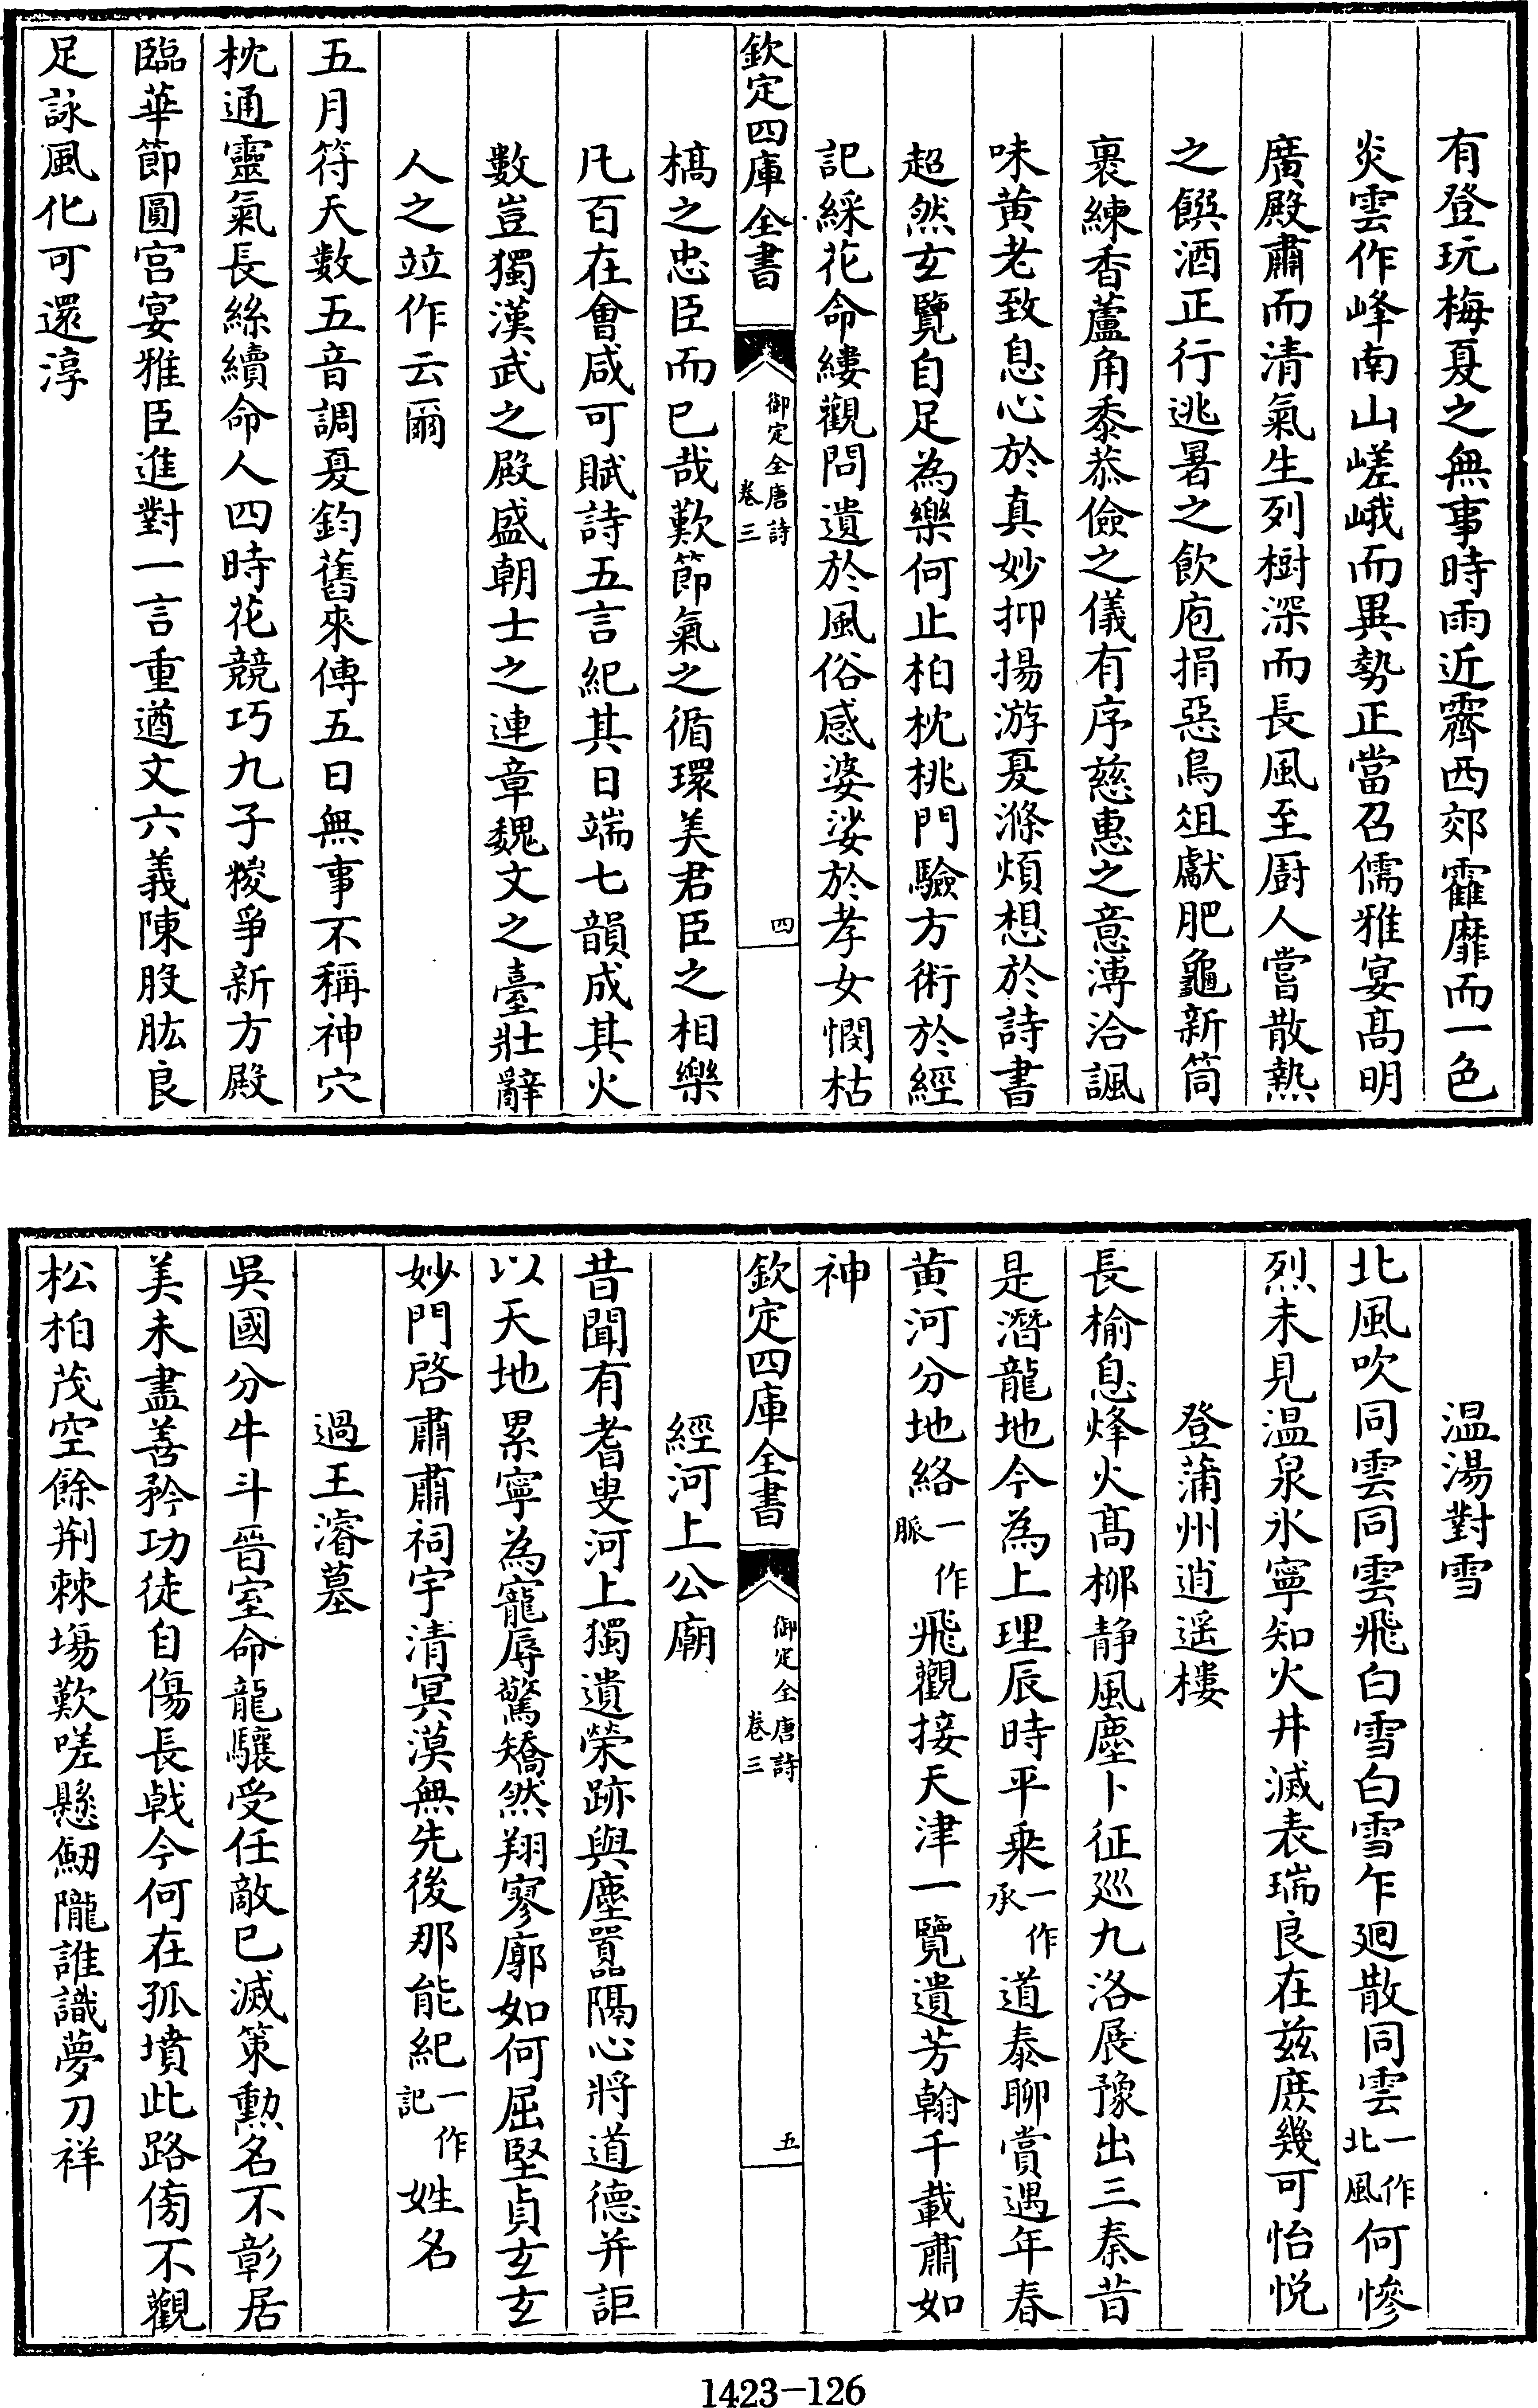 有登玩梅夏之無事時雨近霽西郊霍靡而一色
炎雲作峰南山嵯峨而異勢正當召儒雅宴高明
廣殿肅而清氣生列樹深而長風至厨人嘗散熱
之饌酒正行逃暑之飲庖捐惡鳥俎獻肥龜新筒
裹練香蘆角黍恭儉之儀有序慈惠之意溥洽諷
味黄老致息心於真妙抑揚游夏滌煩想於詩書
超然玄覽自足為樂何止柏枕桃門驗方術於經
記綵花命縷觀問遺於風俗感婆娑於孝女憫枯
欽定四庫全書
御定全唐詩
卷三
四
槁之忠臣而已哉歎節氣之循環美君臣之相樂
凡百在會咸可賦詩五言紀其日端七韻成其火
數豈獨漢武之殿盛朝士之連章魏文之臺壯辭
人之竝作云爾
五月符天數五音調夏鈞舊來傳五日無事不稱神穴
枕通靈氣長絲續命人四時花競巧九子糉爭新方殿
臨華節圓宫宴雅臣進對一言重遒文六義陳股肱良
足詠風化可還淳
温湯對雪
北風吹同雲同雲飛白雪白雪乍迴散同雲一作北風何慘
烈未見温泉氷寧知火井滅表瑞良在兹庶幾可怡悦
登蒲州逍遥樓
長榆息烽火高柳静風塵卜征巡九洛展豫出三秦昔
是潛龍地今為上理辰時平乗一作承道泰聊賞遇年春
黄河分地絡一作脈飛觀接天津一覽遺芳翰千載肅如
神
欽定四庫全書
御定全唐詩
卷三
五
經河上公廟
昔聞有耆叟河上獨遺榮跡與塵囂隔心將道德并詎
以天地累寧為寵辱驚矯然翔寥廓如何屈堅貞玄玄
妙門啓肅肅祠宇清冥漠無先後那能紀一作記姓名
過王濬墓
吳國分牛斗晉室命龍驤受任敵已滅策勲名不彰居
美未盡善矜功徒自傷長戟今何在孤墳此路傍不觀
松柏茂空餘荆棘場歎嗟懸劒隴誰識夢刀祥
1423-126